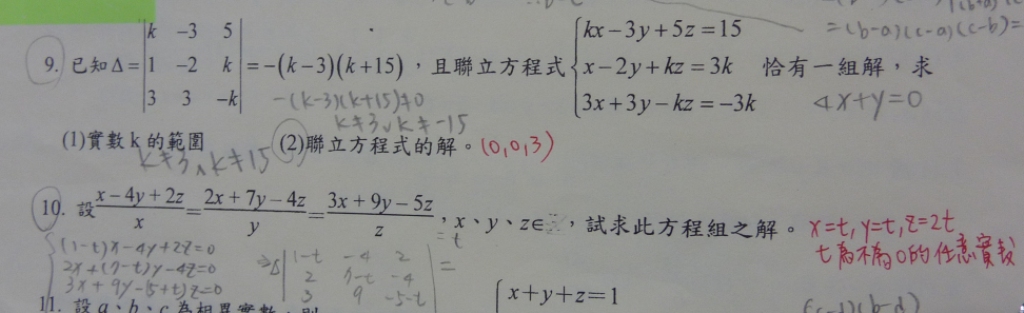 =(b-a)(c-a)(c-b)=
9. 已知Δ= | k -3 5 | =-(k-3)(k+15),且聯立方程式 { kx-3y+5z=15 恰有一組解,求
| 1 -2 k | { x-2y+kz=3k
| 3 3 -k | { 3x+3y-kz=-3k
-(k-3)(k+15)≠0
k≠3∨k≠-15
4x+y=0
(1)實數k的範圍 (2)聯立方程式的解。(0,0,3)
k≠3∧k≠15
10. 設 (x-4y+2z)/x = (2x+7y-4z)/y = (3x+9y-5z)/z,x、y、z∈ ,試求此方程組之解。 x=t, y=t, z=2t
=t
t為不為0的任意實數
(1-t)x-4y+2z=0
2x+(7-t)y-4z=0
3x+9y-(5+t)z=0
⇒Δ | 1-t -4 2 | =
| 2 7-t -4 |
| 3 9 -5-t |
11. 設a、b、c為相異實數,則 { x+y+z=1